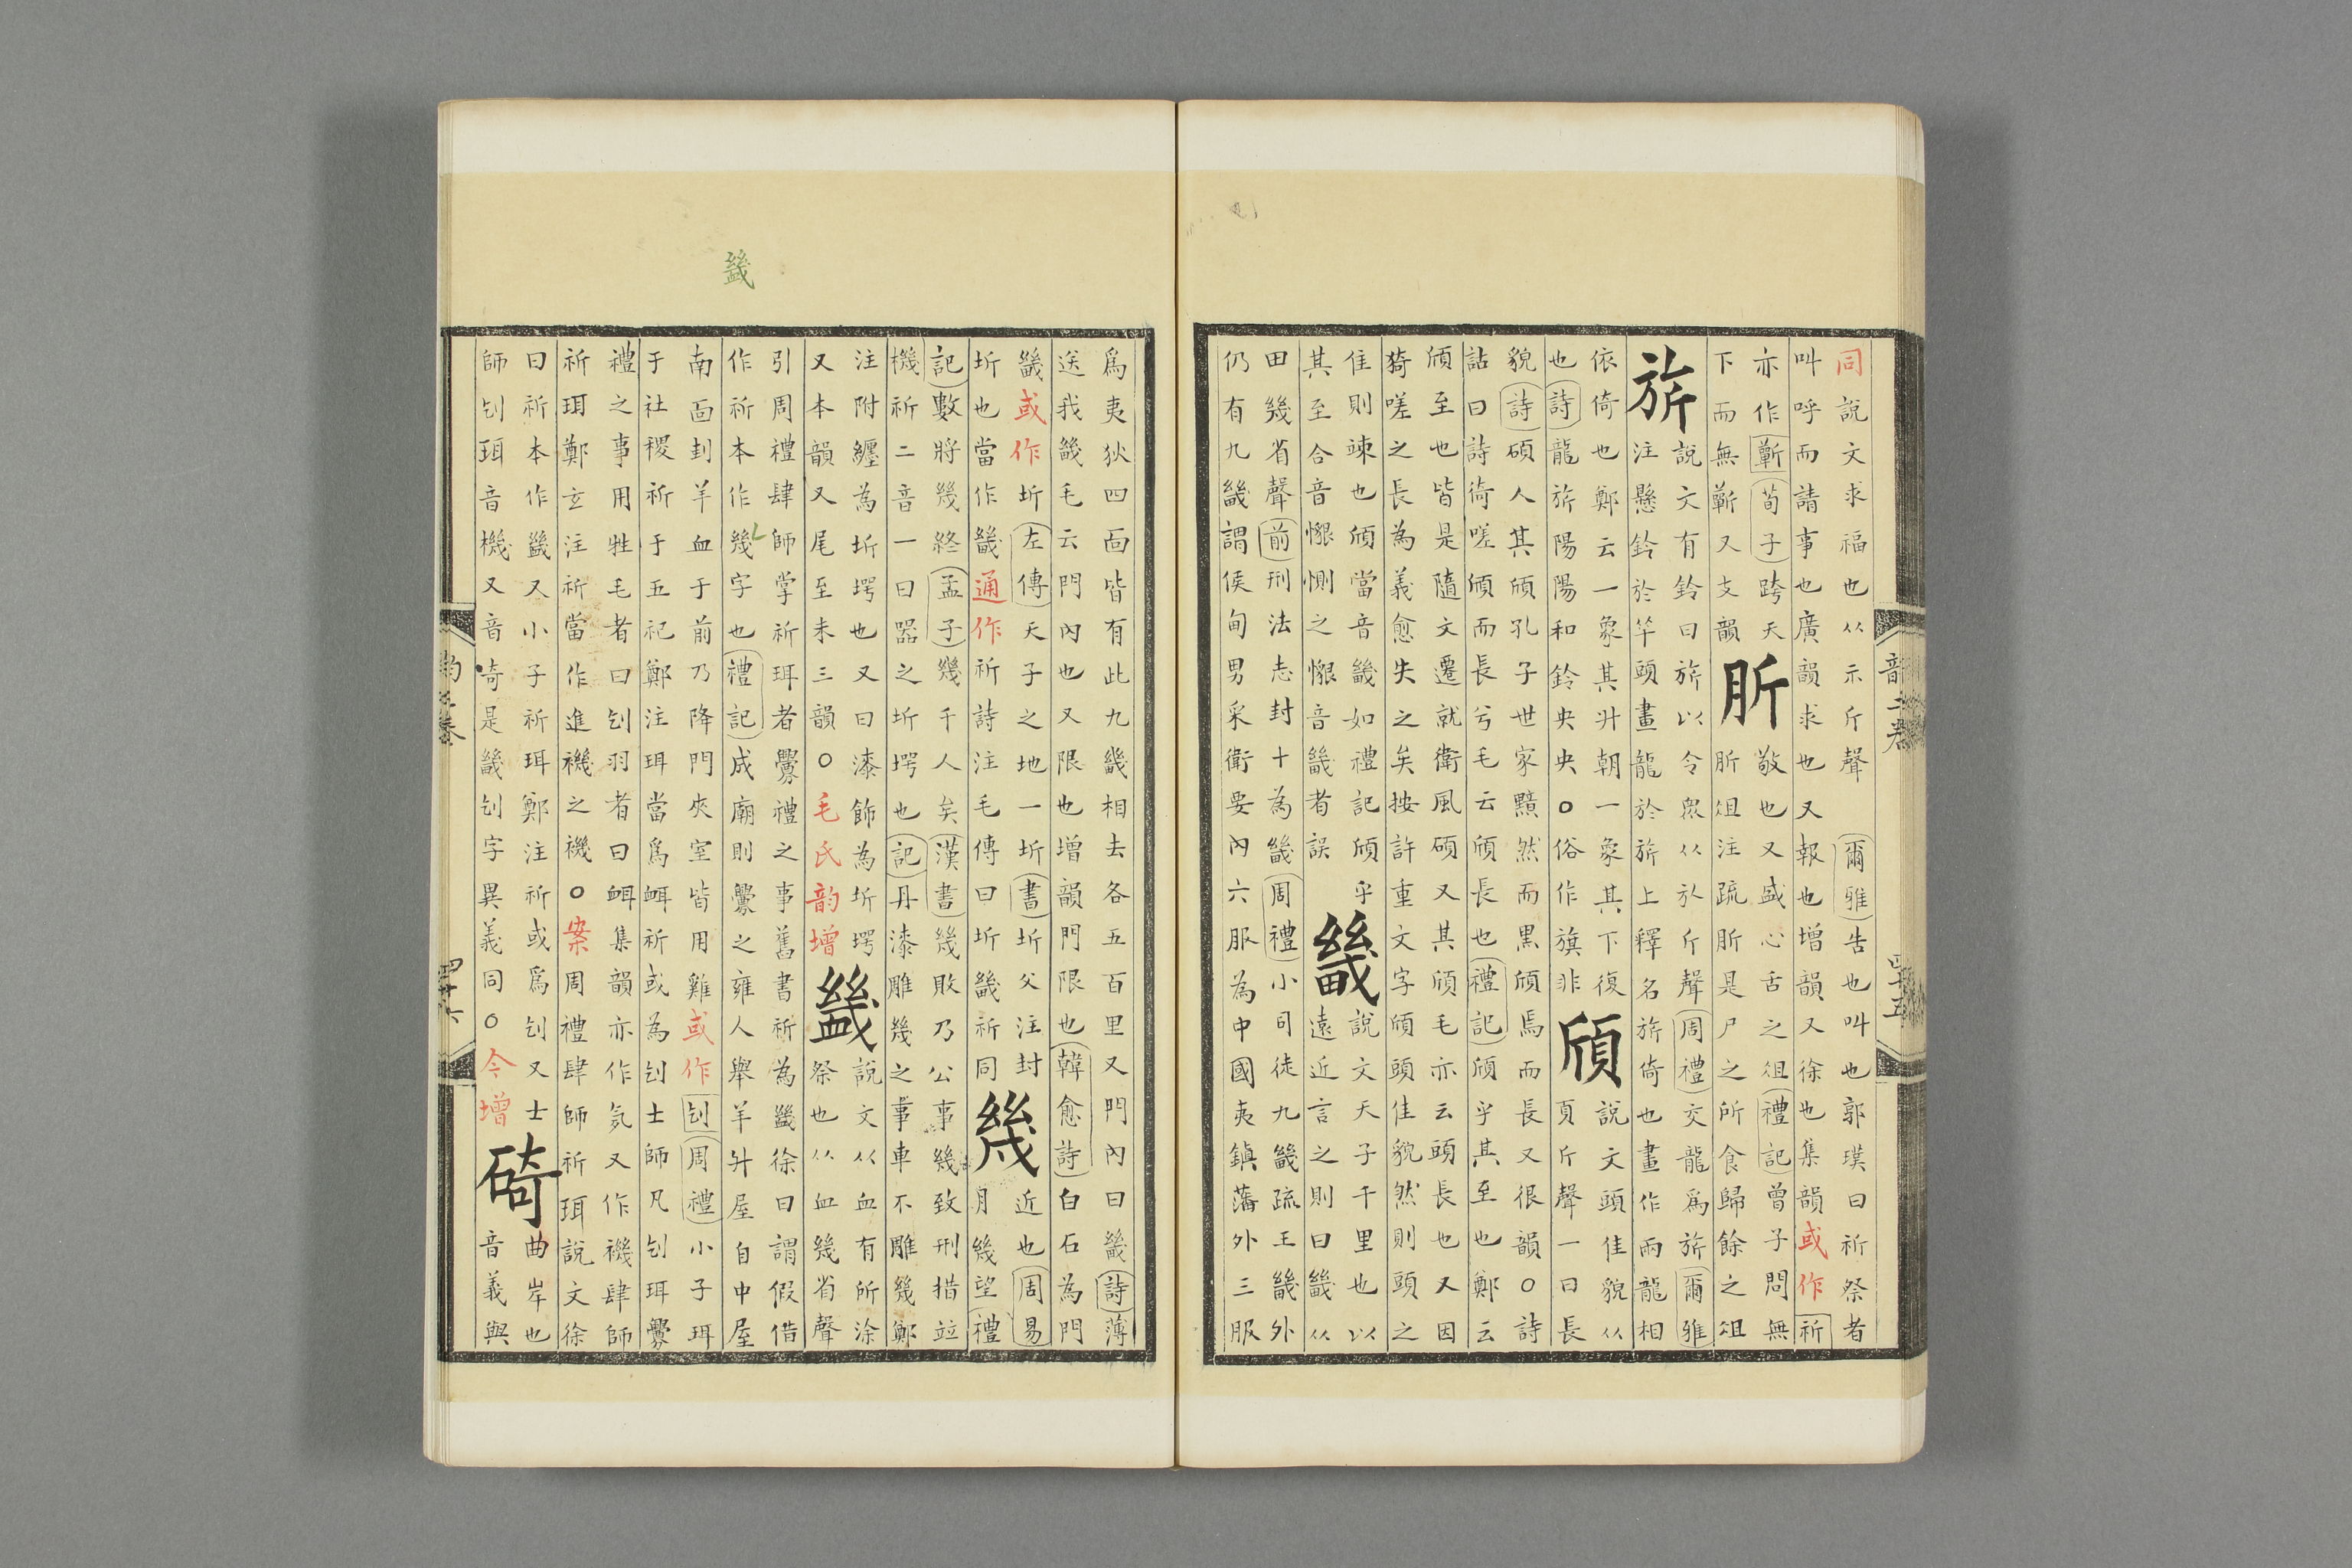 同說文求福也从示斤聲爾雅告也叫也郭璞曰祈祭者
叫呼而請事也廣韻求也又報也增韻又徐也集韻或作祈
亦作蘄荀子跨天
下而無蘄又支韻
肵
敬也又盛心舌之俎禮記曾子問無
肵俎注疏肵是尸之所食歸餘之俎
旂
說文有鈴曰旂以令眾从㫃斤聲周禮交龍爲旂爾雅
注懸鈴於竿頭畫龍於旂上釋名旂倚也畫作兩龍相
依倚也鄭云一象其升朝一象其下復
也詩龍旂陽陽和鈴央央〇俗作旗非
頎
說文頭佳貌从
頁斤聲一曰長
貌詩碩人其頎孔子世家黯然而黑頎焉而長又很韻〇詩
詁曰詩猗嗟頎而長兮毛云頎長也禮記頎乎其至也鄭云
頎至也皆是隨文遷就衛風碩又其頎毛亦云頭長也又因
猗嗟之長為義愈失之矣按許重文字頎頭佳貌然則頭之
佳則竦也頎當音畿如禮記頎乎
其至合音懇惻之懇音畿者誤
畿
說文天子千里也以
遠近言之則曰畿从
田幾省聲前刑法志封十為畿周禮小司徒九畿疏王畿外
仍有九畿謂侯甸男采衛要內六服為中國夷鎮藩外三服
韻二卷
四十五
爲夷狄四面皆有此九畿相去各五百里又門內曰畿詩薄
送我畿毛云門內也又限也增韻門限也韓愈詩白石為門
畿或作圻左傳天子之地一圻書圻父注封
圻也當作畿通作祈詩注毛傳曰圻畿祈同
幾
近也周易
月幾望禮
記數將幾終孟子幾千人矣漢書幾敗乃公事幾致刑措竝
機祈二音一曰器之圻堮也記丹漆雕幾之事車不雕幾鄭
注附纏為圻堮也又曰漆飾為圻堮
又本韻又尾至未三韻〇毛氏韵增
䤒
說文以血有所涂
祭也从血幾省聲
引周禮肆師掌祈珥者釁禮之事舊書祈為䤒徐曰謂假借
作祈本作幾字也禮記成廟則釁之雍人舉羊升屋自中屋
䤒
南面刲羊血于前乃降門夾室皆用雞或作刉周禮小子珥
于社稷祈于五祀鄭注珥當爲衈祈或為刉士師凡刉珥釁
禮之事用牲毛者曰刉羽者曰衈集韻亦作刏又作禨肆師
祈珥鄭玄注祈當作進禨之禨〇案周禮肆師祈珥說文徐
曰祈本作䤒又小子祈珥鄭注祈或爲刉又士
師刉珥音機又音崎是䤒刉字異義同〇今增
碕
曲岸也
音義與
四十六